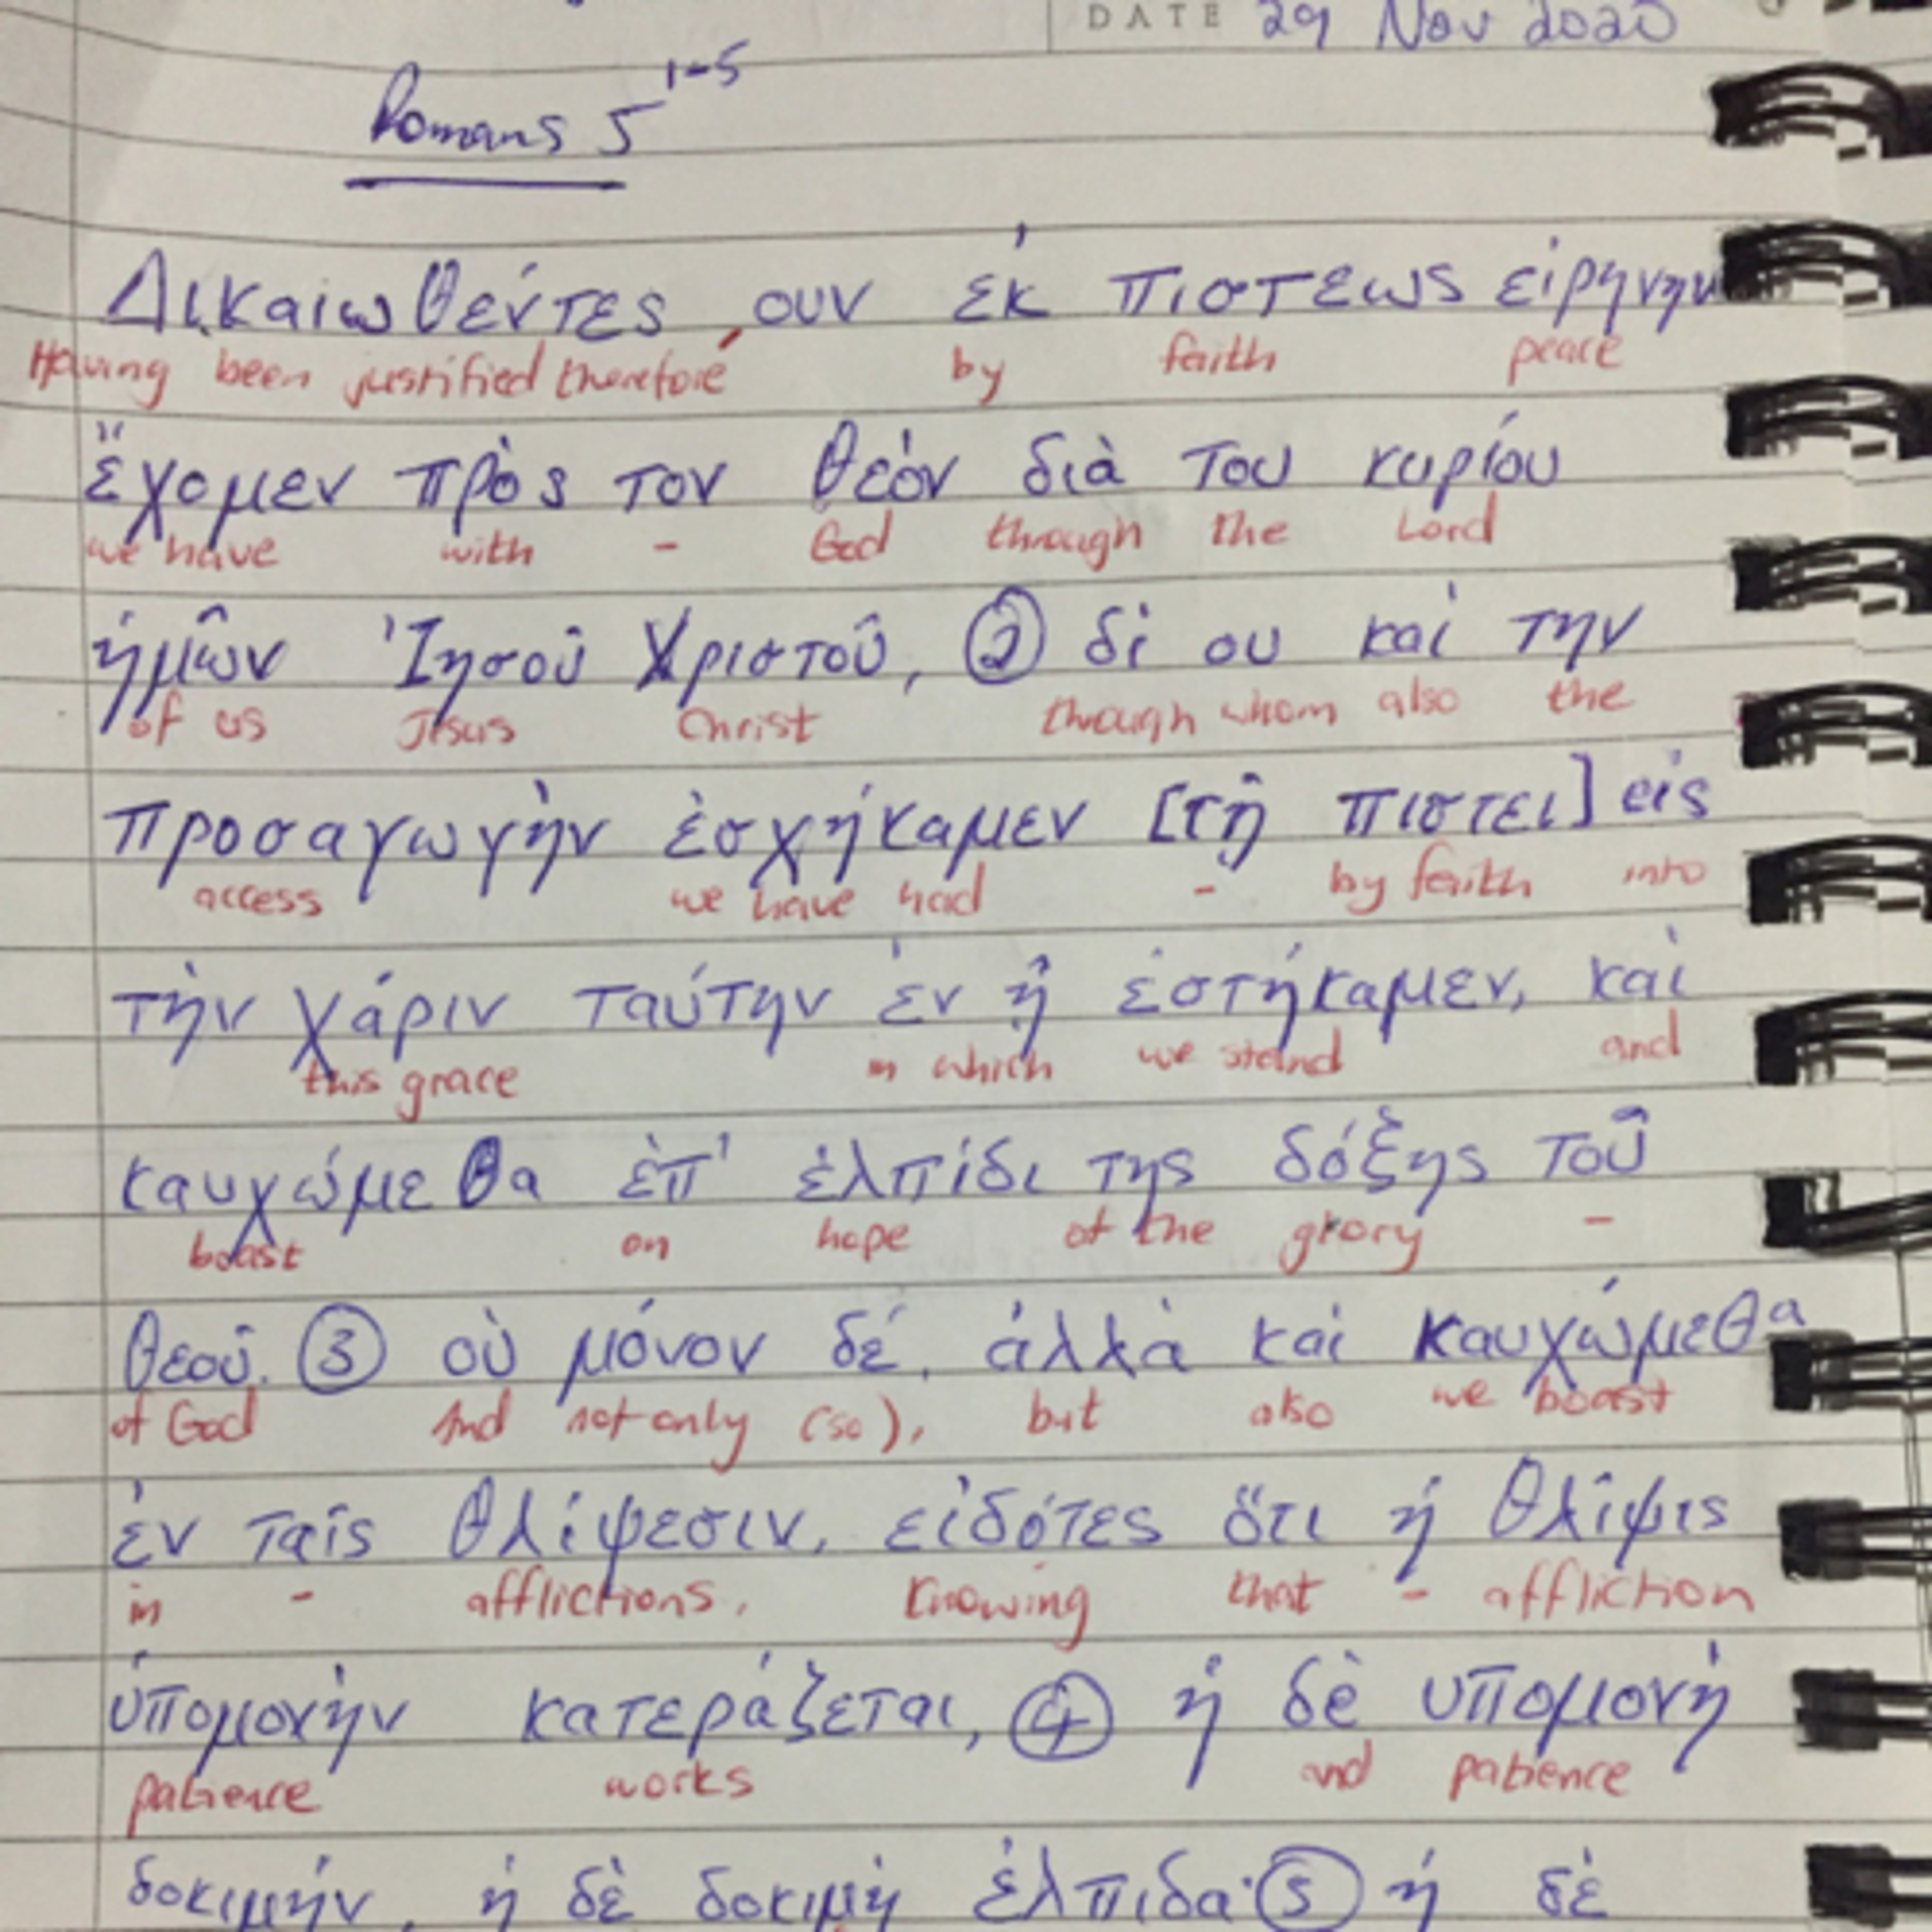 DATE 29 Nov 2020
Romans 5 1-5
Δικαιωθέντες ουν ἐκ πιστεως εἰρηνην
Having been justified therefore by faith peace
ἔχομεν πρὸς τον θεόν διὰ του κυρίου
we have with - God through the Lord
ἡμῶν Ἰησοῦ Χριστοῦ, ② δἰ ου καἱ την
of us Jesus Christ through whom also the
προσαγωγὴν ἐσχήκαμεν [τῇ πιστει] εἰς
access we have had - by faith into
τὴν χάριν ταύτην ἐν ᾗ ἑστήκαμεν, καὶ
this grace in which we stand and
καυχώμεθα ἐπ' ἐλπίδι της δόξης τοῦ
boast on hope of the glory -
θεοῦ. ③ οὐ μόνον δέ, ἀλλὰ καἱ καυχώμεθα
of God And not only (so), but also we boast
ἐν ταῖς θλίψεσιν, εἰδότες ὅτι ἡ θλῖψις
in - afflictions, knowing that - affliction
ὑπομονὴν κατεράζεται, ④ ἡ δὲ υπομονἡ
patience works and patience
δοκιμήν, ἡ δὲ δοκιμὴ ἐλπιδα· ⑤ ἡ δὲ